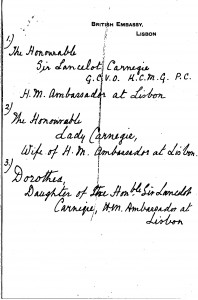 BRITISH EMBASSY,
LISBON
1)
The Honourable
Sir Lancelot Carnegie
G.C.V.O. K.C.M.G. P.C.
H.M. Ambassador at Lisbon
2)
The Honourable
Lady Carnegie,
Wife of H.M. Ambassador at Lisbon.
3)
Dorothea,
Daughter of the Honble Sir Lancelot
Carnegie, H.M. Ambassador at
Lisbon